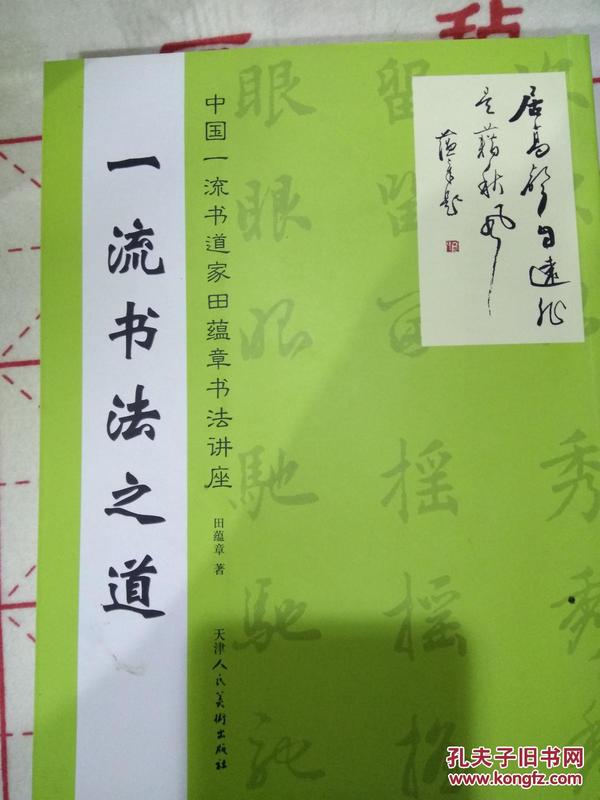 一流书法之道
中国一流书道家田蕴章书法讲座
田蕴章 著
天津人民美術出版社
居高聲自遠非
是藉秋風
蕴章題
眼 留
眼 留
眼
馳 摇 秀
馳 摇 秀
馳 摇
孔夫子旧书网
www.kongfz.com